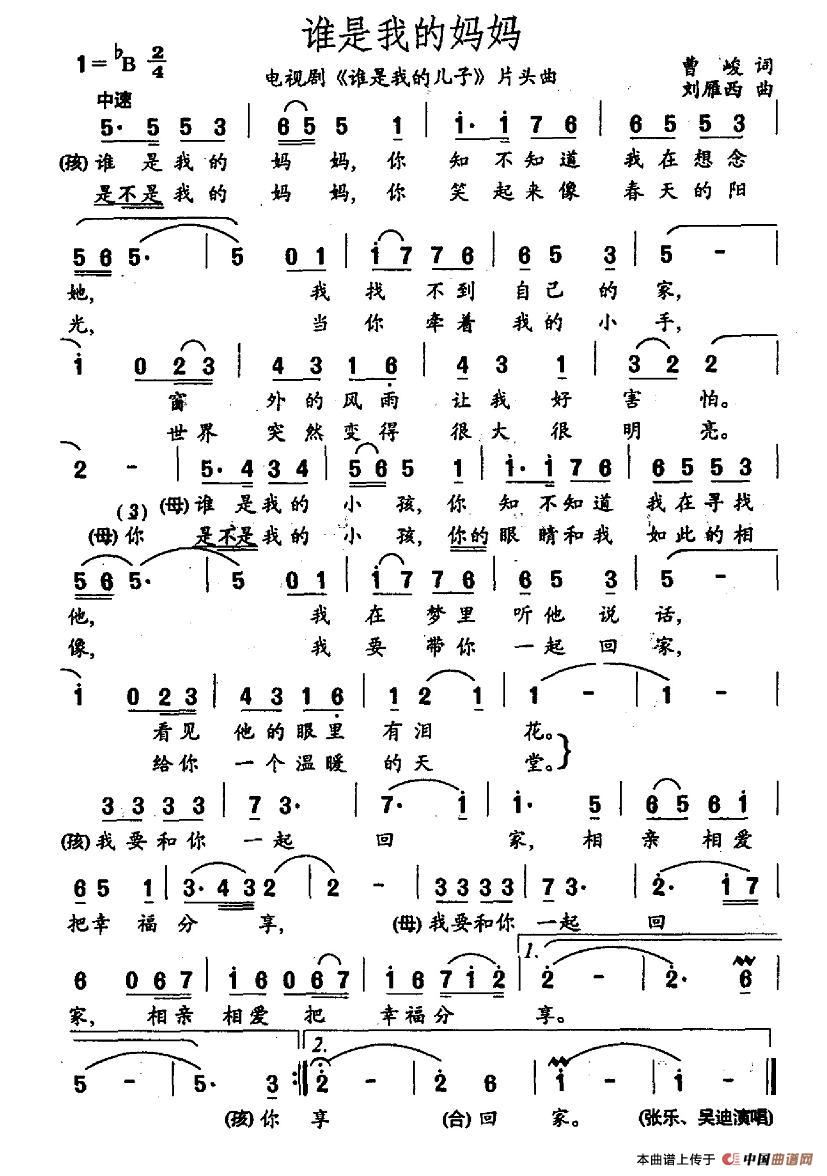 谁是我的妈妈
1=♭B 2/4
电视剧《谁是我的儿子》片头曲
曹峻 词
刘雁西 曲
中速
5· 5 5 3 | 6 5 5 1 | i· i 7 6 | 6 5 5 3 |
(孩)谁 是 我 的 妈 妈, 你 知 不 知 道 我 在 想 念
是不是 我 的 妈 妈, 你 笑 起 来 像 春 天 的 阳
5 6 5· | 5 0 1 | i 7 7 6 | 6 5 3 | 5 - |
她, 我 找 不 到 自 己 的 家,
光, 当 你 牵 着 我 的 小 手,
i 0 2 3 | 4 3 1 6 | 4 3 1 | 3 2 2 |
窗 外 的 风 雨 让 我 好 害 怕。
世 界 突 然 变 得 很 大 很 明 亮。
2 - | 5· 4 3 3 4 | 5 6 5 1 | i· i 7 6 | 6 5 5 3 |
(3) (母)谁 是 我 的 小 孩, 你 知 不 知 道 我 在 寻 找
(母)你 是不是 我 的 小 孩, 你的 眼 睛 和 我 如 此 的 相
5 6 5· | 5 0 1 | i 7 7 6 | 6 5 3 | 5 - |
他, 我 在 梦 里 听 他 说 话,
像, 我 要 带 你 一 起 回 家,
i 0 2 3 | 4 3 1 6 | 1 2 1 | 1 - | 1 |
看 见 他 的 眼 里 有 泪 花。
给 你 一 个 温 暖 的 天 堂。
3 3 3 3 | 7 3· | 7· i | i· 5 | 6 5 6 i |
(孩)我 要 和 你 一 起 回 家, 相 亲 相 爱
6 5 1 | 3· 4 3 2 | 2 - | 3 3 3 3 | 7 3· | 2· i 7 |
把 幸 福 分 享, (母)我 要 和 你 一 起 回
6 0 6 7 | i 6 0 6 7 | i 6 7 i 2 | 1. 2 - | 2· 6 |
家, 相 亲 相 爱 把 幸 福 分 享。
5 - | 5· 3 :| 2. 2 - | 2 6 | i - | i - |
(孩)你 享 (合)回 家。 (张乐、吴迪演唱)
本曲谱上传于 中国曲谱网